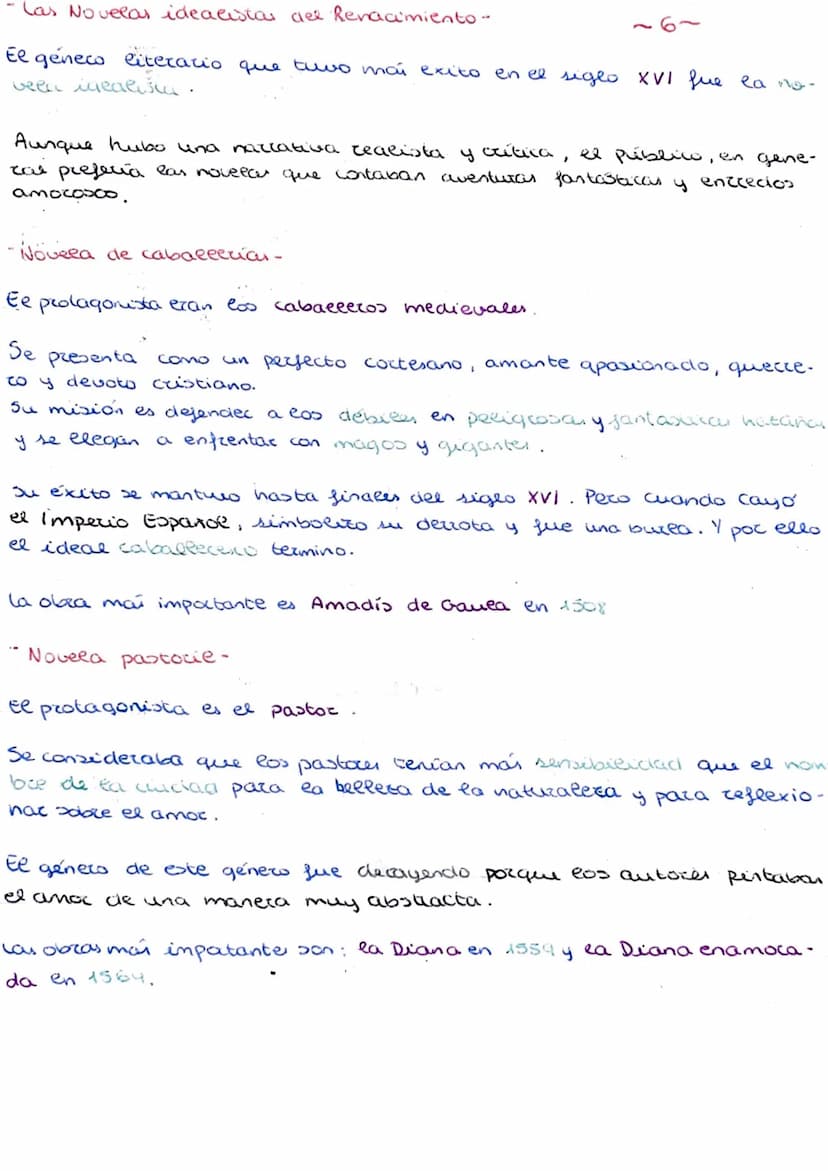 - Las Novelas idealistas del Renacimiento -
~ 6 ~
El género literario que tuvo más exito en el siglo XVI fue la no-
vela idealista.
Aunque hubo una narrativa realista y crítica, el público, en gene-
ral prefería las novelas que contaban aventuras fantásticas y enrredos
amorosos.
- Novela de caballerías -
El protagonista eran los caballeros medievales.
Se presenta como un perfecto cortesano, amante apasionado, guerre-
ro y devoto cristiano.
Su misión es defender a los débiles en peligrosas y fantasticas hatañas
y se llegan a enfrentar con magos y gigantes.
Su éxito se mantuvo hasta finales del siglo XVI. Pero cuando cayó
el Imperio Español, simbolizo su derrota y fue una burla. Y por ello
el ideal caballeresco termino.
La obra más importante es Amadís de Gaula en 1508
- Novela pastoril -
El protagonista es el pastor.
Se consideraba que los pastores tenían más sensibilidad que el hom
bre de la ciudad para la belleza de la naturaleza y para reflexio-
nar sobre el amor.
El género de este género fue decayendo porque los autores pintaban
el amor de una manera muy abstracta.
Las obras más impotante son: la Diana en 1559 y la Diana enamora-
da en 1564.